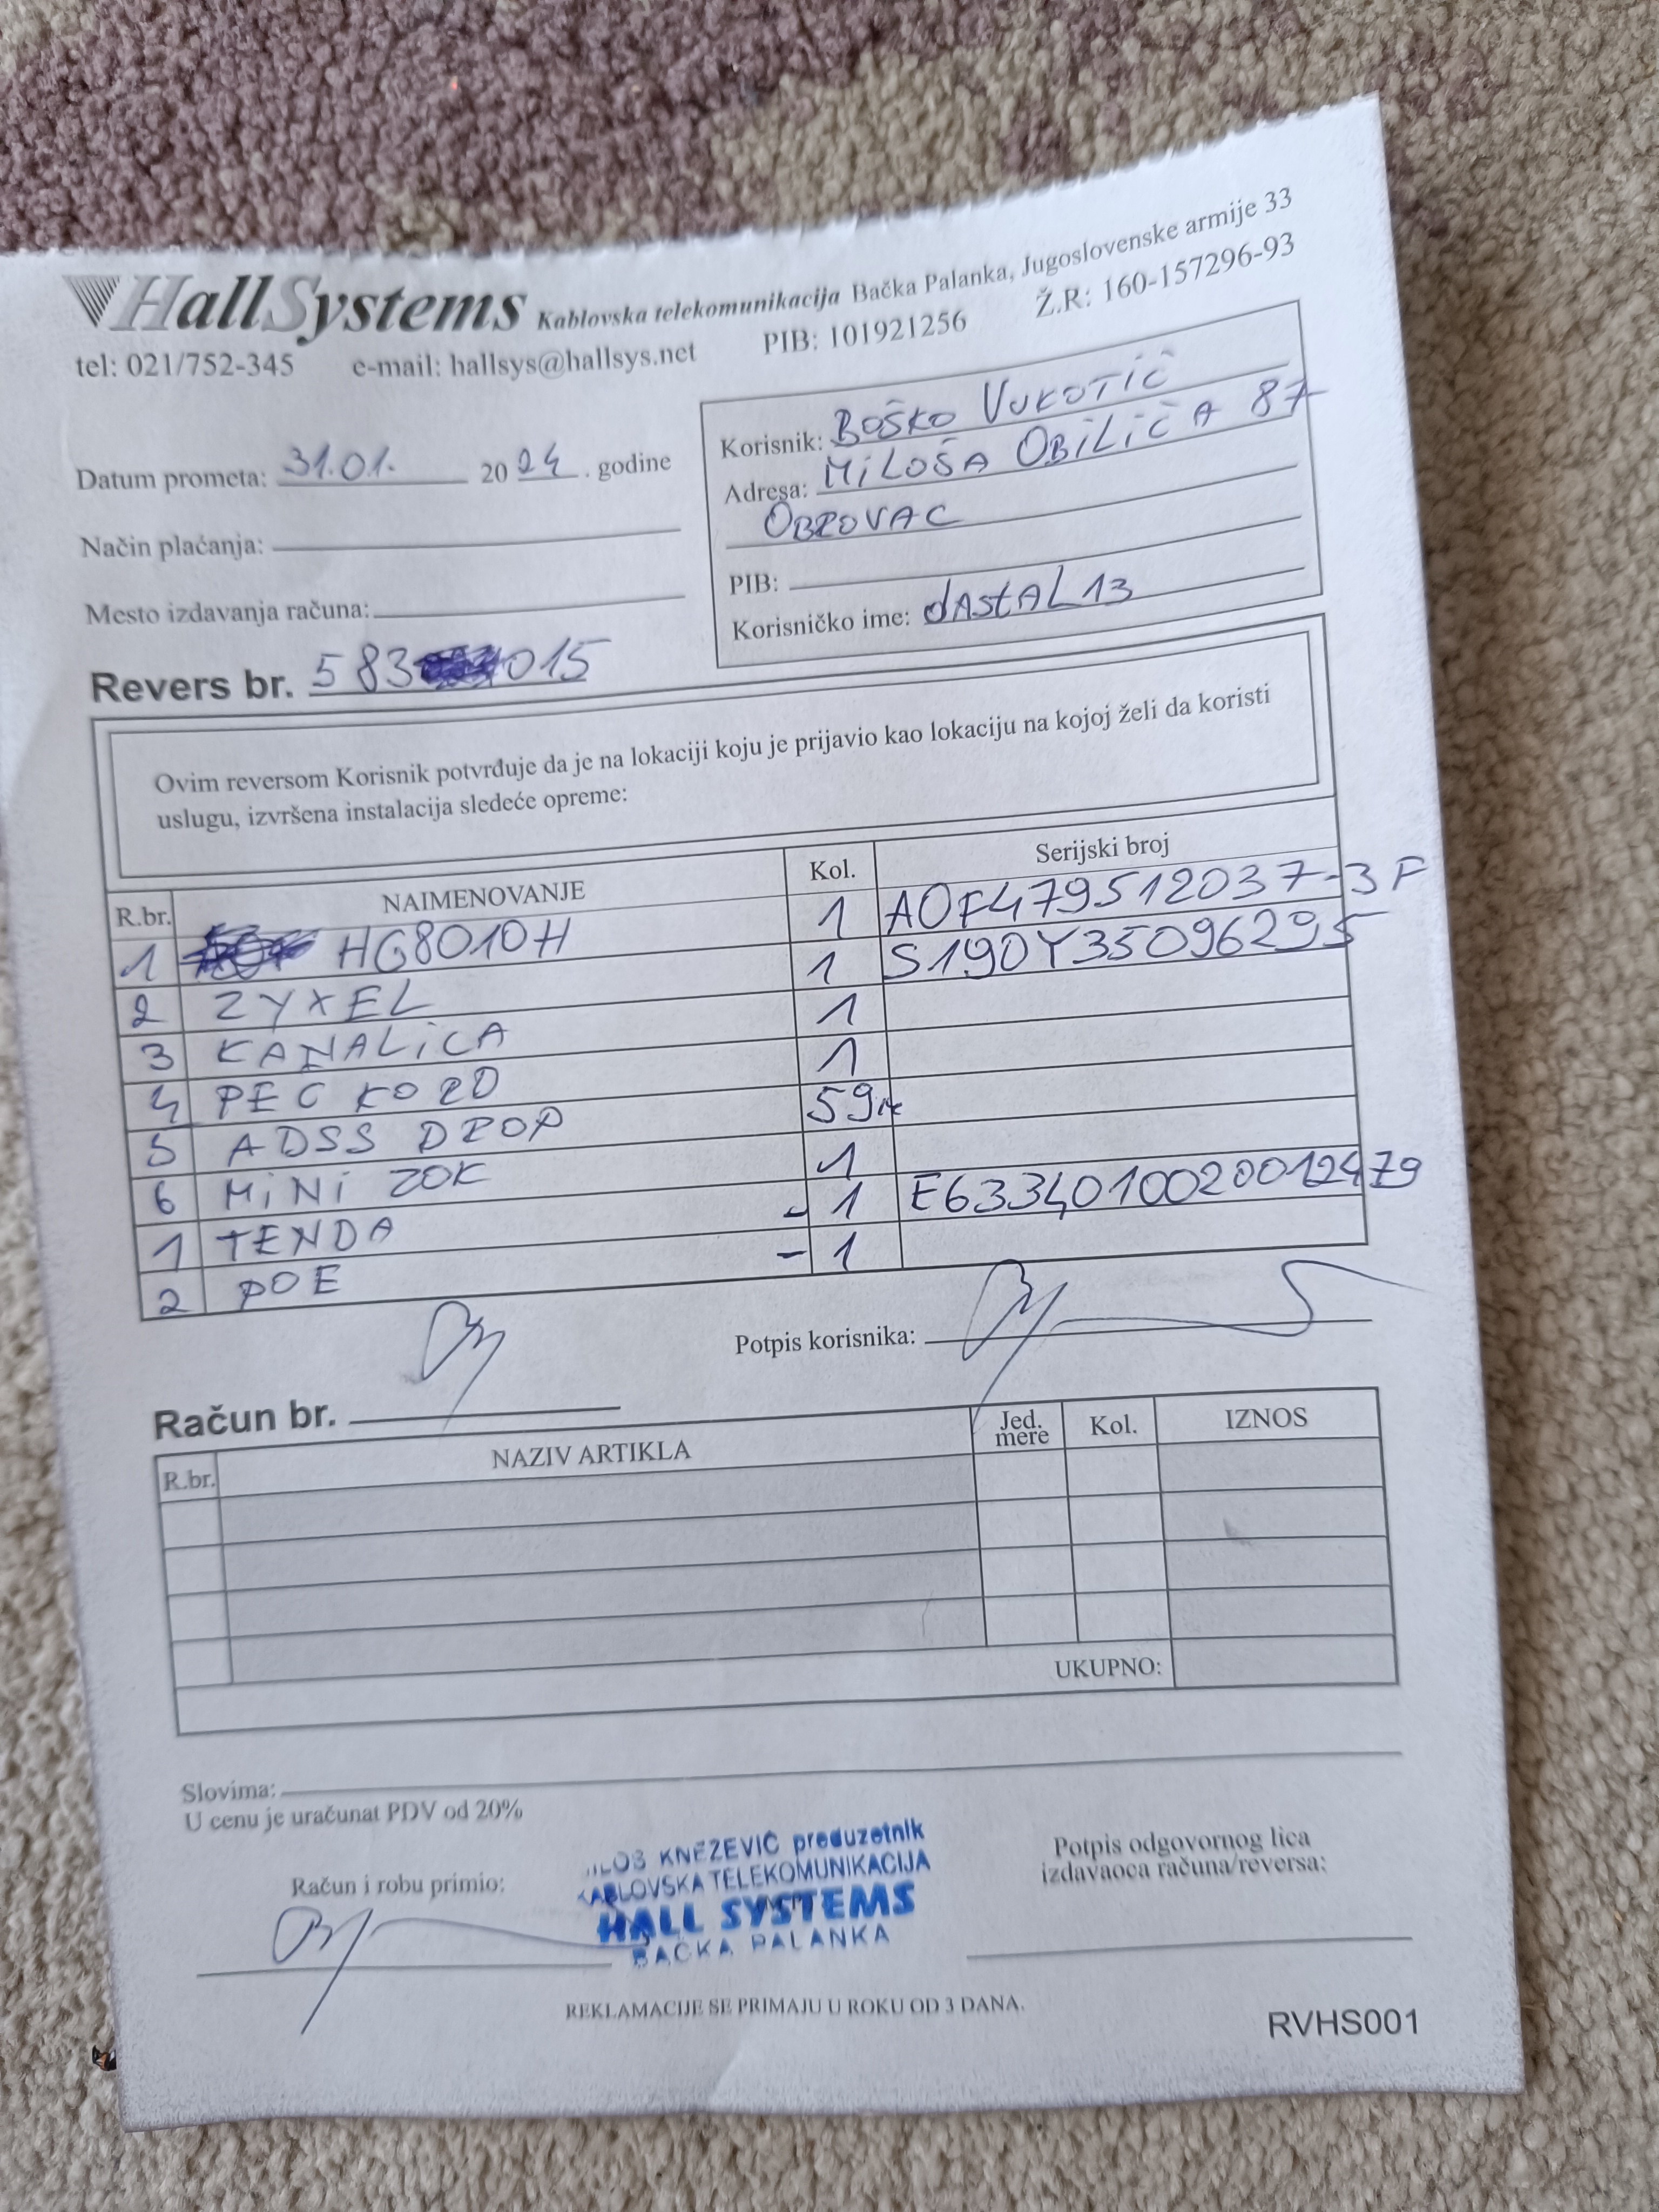 HallSystems Kablovska telekomunikacija Bačka Palanka, Jugoslovenske armije 33
tel: 021/752-345 e-mail: hallsys@hallsys.net PIB: 101921256 Ž.R: 160-157296-93
Datum prometa: 31.01. 2024. godine
Način plaćanja:
Mesto izdavanja računa:
Korisnik: BOŠKO VUKOTIĆ
Adresa: MILOŠA OBILIĆA 87
OBROVAC
PIB:
Korisničko ime: dAStAL13
Revers br. 583 015
Ovim reversom Korisnik potvrđuje da je na lokaciji koju je prijavio kao lokaciju na kojoj želi da koristi
uslugu, izvršena instalacija sledeće opreme:
R.br. NAIMENOVANJE Kol. Serijski broj
1 HG8010H 1 A0F479512037-3F
2 ZYXEL 1 S190Y35096295
3 KANALICA 1
4 PEC KORD 1
5 ADSS DROP 59m
6 MINI ZOK 1
1 TENDA - 1 E6334010020012479
2 POE - 1
Potpis korisnika:
Račun br.
R.br. NAZIV ARTIKLA Jed. mere Kol. IZNOS
UKUPNO:
Slovima:
U cenu je uračunat PDV od 20%
Račun i robu primio:
KNEŽEVIĆ preduzetnik
KABLOVSKA TELEKOMUNIKACIJA
HALL SYSTEMS
BAČKA PALANKA
Potpis odgovornog lica
izdavaoca računa/reversa:
REKLAMACIJE SE PRIMAJU U ROKU OD 3 DANA.
RVHS001